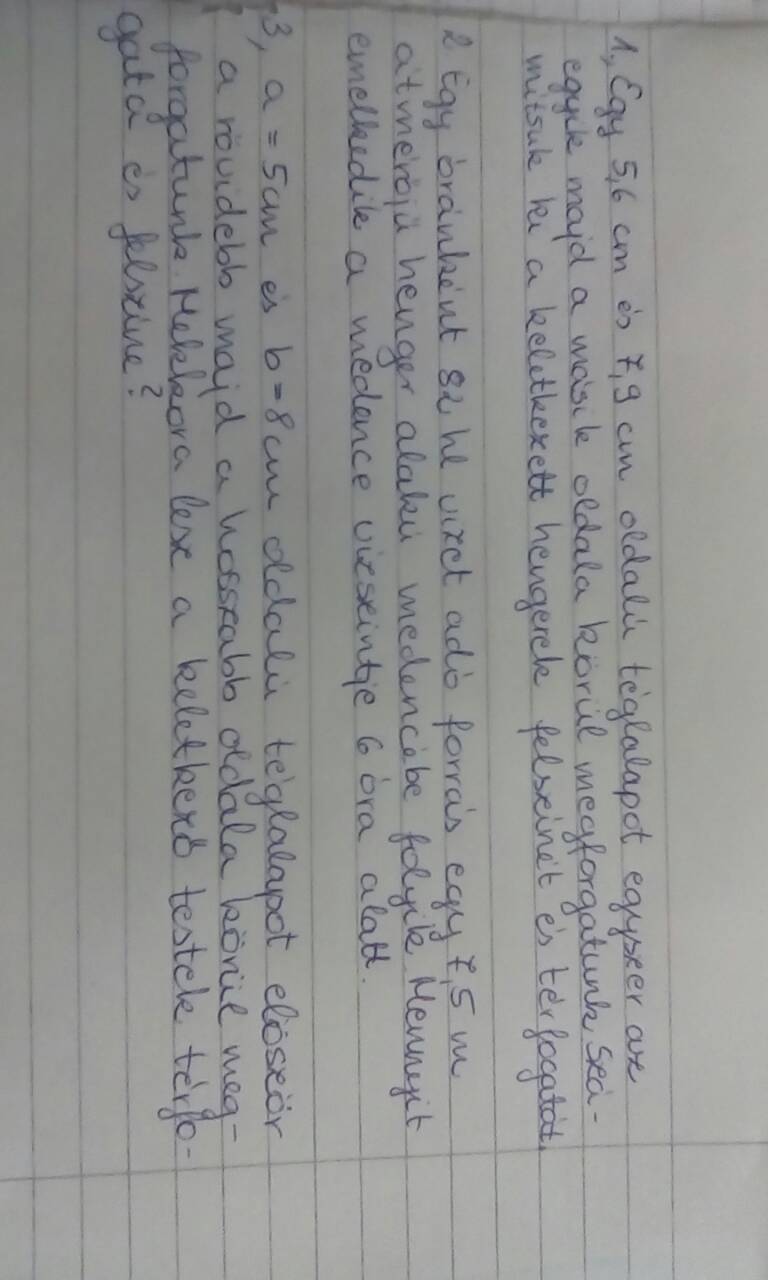 1, Egy 5,6 cm és 7,9 cm oldalú téglalapot egyszer az
egyik majd a másik oldala körül megforgatunk. Szá-
mítsuk ki a keletkezett hengerek felszínét és térfogatát.
2 Egy óránként 82 hl vizet adó forrás egy 7,5 m
átmérőjű henger alakú medencébe folyik. Mennyit
emelkedik a medence vízszintje 6 óra alatt.
3, a = 5cm és b = 8cm oldalú téglalapot először
a rövidebb majd a hosszabb oldala körül meg-
forgatunk. Mekkora lesz a keletkező testek térfo-
gata és felszíne?